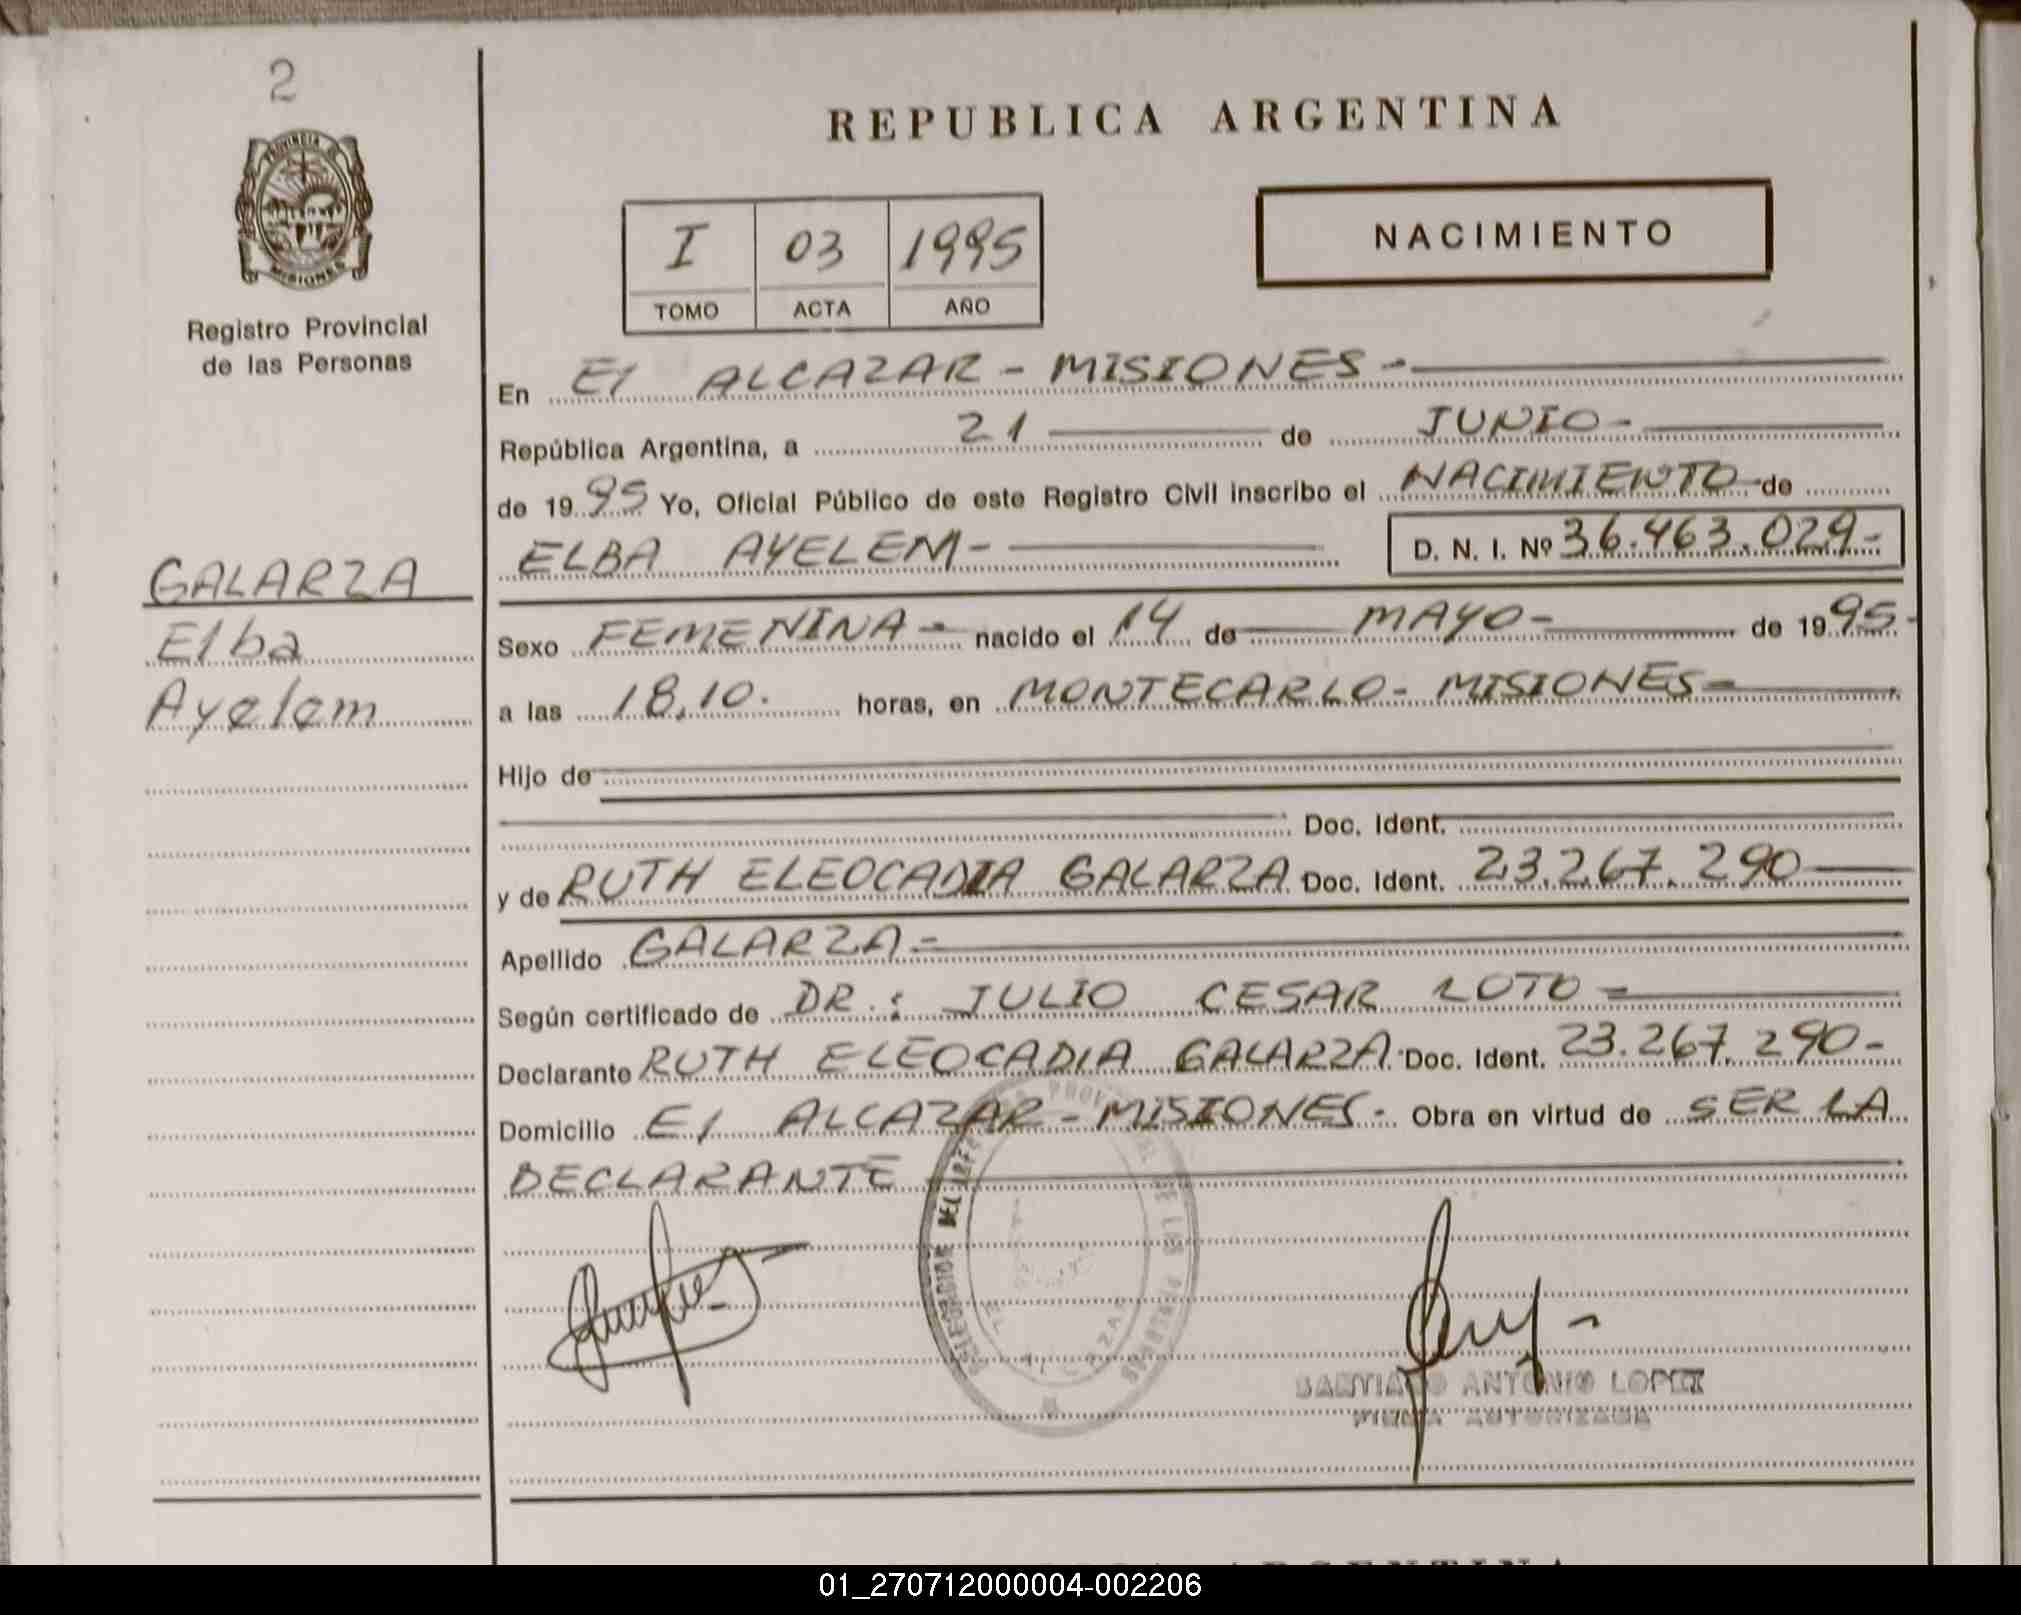 2
REPUBLICA ARGENTINA
PROVINCIA DE
MISIONES
Registro Provincial
de las Personas
I 03 1995
TOMO ACTA AÑO
NACIMIENTO
En El ALCAZAR - MISIONES -
República Argentina, a 21 de JUNIO -
de 1995 Yo, Oficial Público de este Registro Civil inscribo el NACIMIENTO de
ELBA AYELEM - D. N. I. Nº 36.463.029-
GALARZA
Elba
Ayelem
Sexo FEMENINA - nacido el 14 de MAYO - de 1995-
a las 18,10. horas, en MONTECARLO - MISIONES -
Hijo de
Doc. Ident.
y de RUTH ELEOCADIA GALARZA Doc. Ident. 23.267.290
Apellido GALARZA -
Según certificado de DR.: JULIO CESAR LOTO -
Declarante RUTH ELEOCADIA GALARZA. Doc. Ident. 23.267.290-
Domicilio El ALCAZAR - MISIONES - Obra en virtud de SER LA
DECLARANTE
SANTIAGO ANTONIO LOPEZ
FIRMA AUTORIZADA
01_270712000004-002206